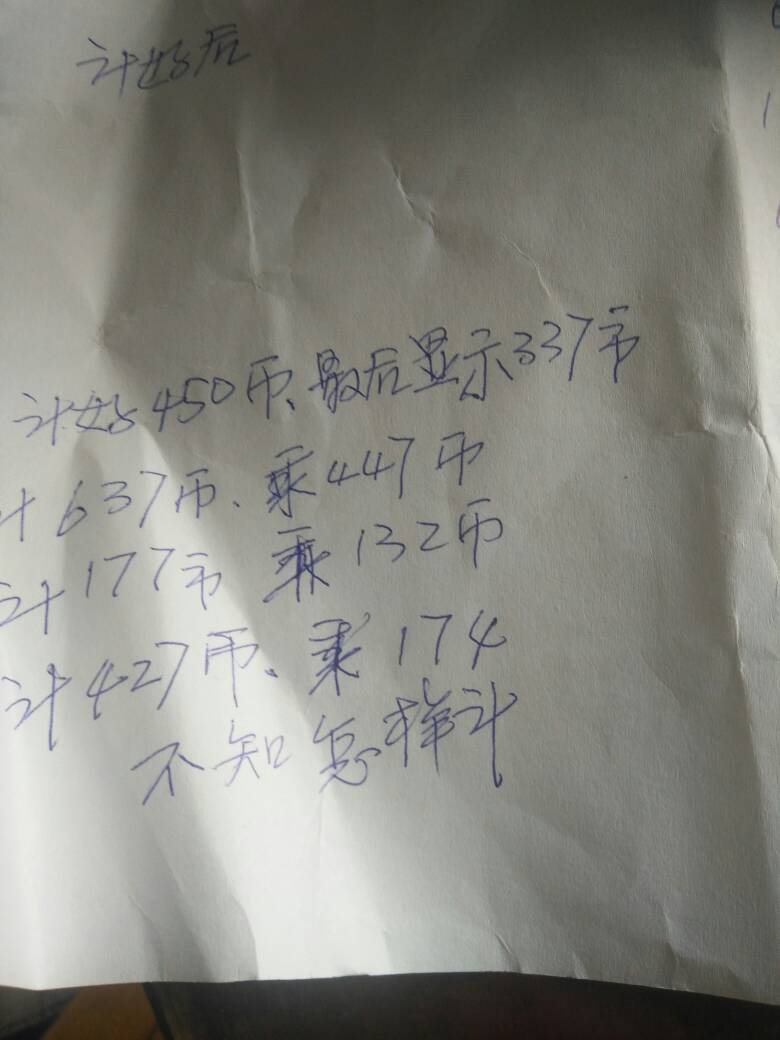 计好后
计好450币、最后显示337币
计637币、乘447币
计177币 乘132币
计427币、乘174
不知怎样计